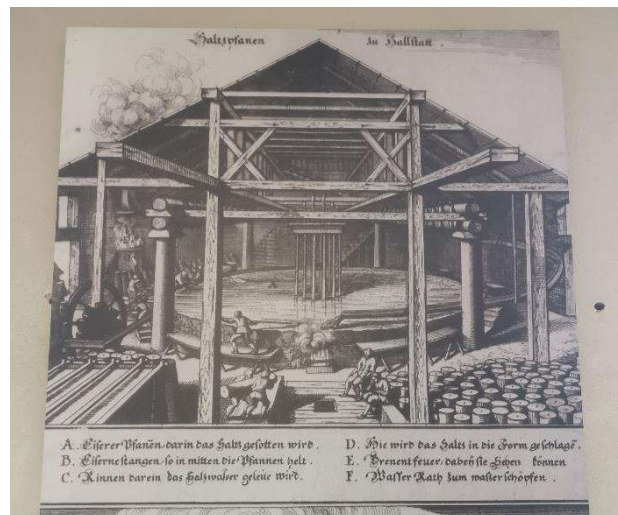 Saltzpfanen zu Hallstatt.
A. Eiserer Pfanen darin das Saltz gesotten wird.
B. Eisernestangen so in mitten die Pfannen helt.
C. Rinnen darein das Saltzwaßer geleite wird.
D. Hie wird das Saltz in die Form geschlagē.
E. Brenent feuer dabeÿ sie Sehen können
F. Wasser Rath zum wasser schöpfen.